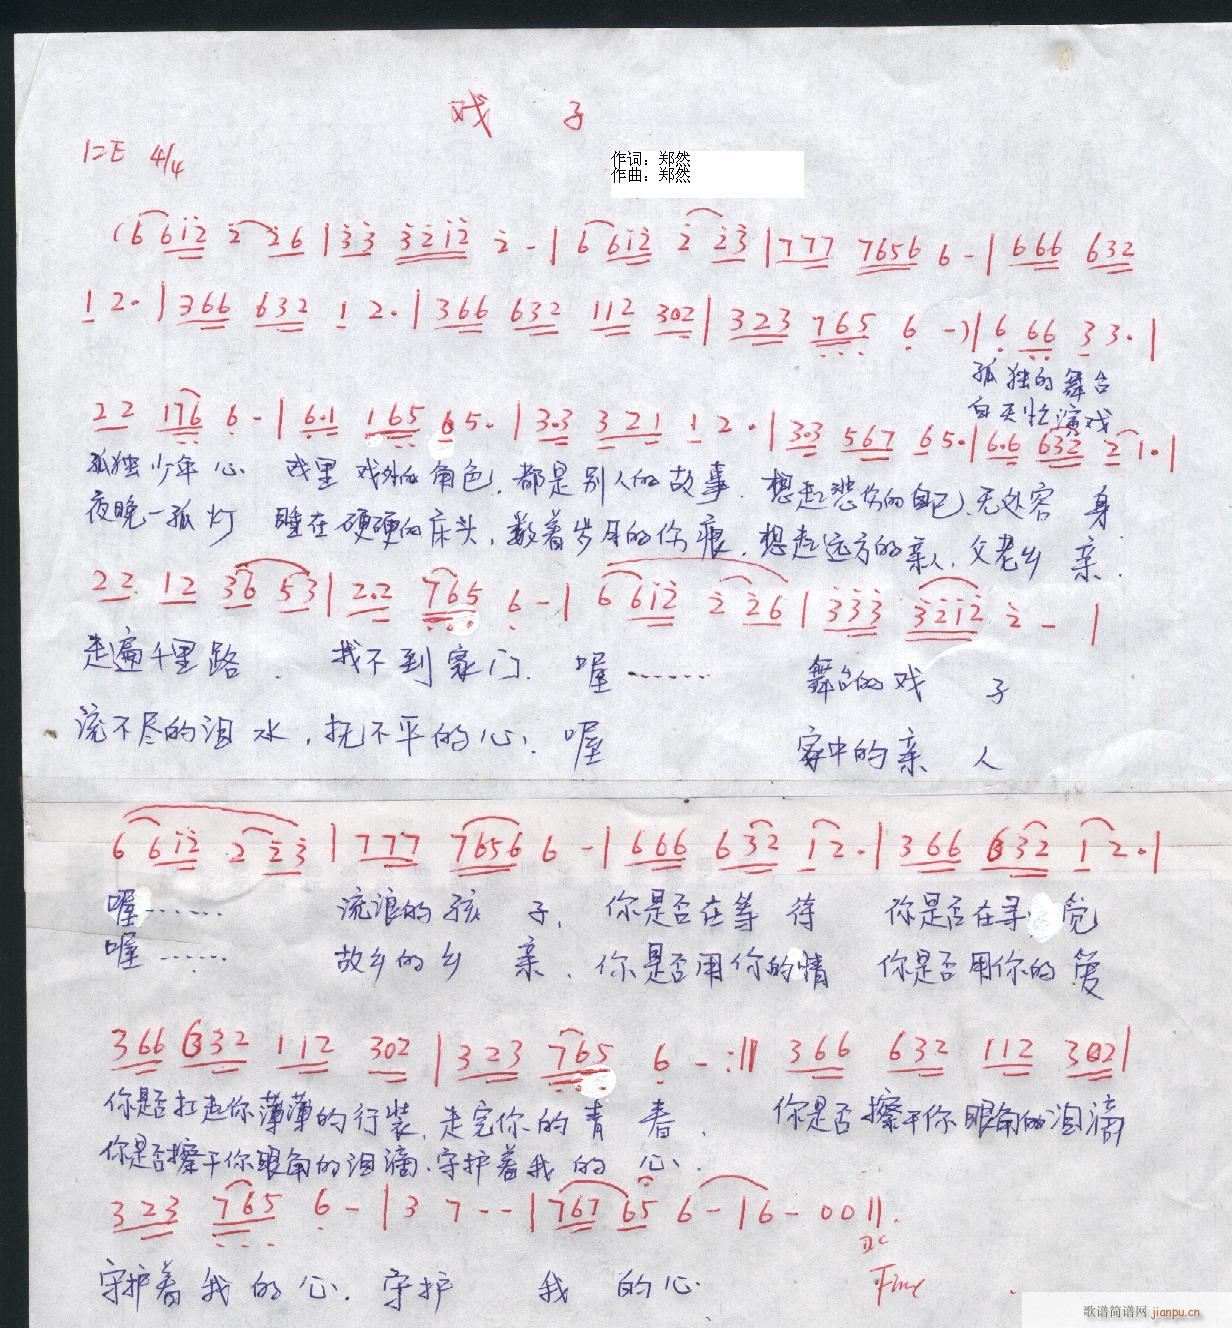 戏 子
1=E 4/4
作词：郑然
作曲：郑然
(6 6i2 2 26 | 33 3212 2 - | 6 6i2 2 23 | 777 7656 6 - | 666 632
1 2. | 366 632 1 2. | 366 632 112 302 | 323 765 6 -) | 6 66 3 3. |
孤独的舞台
白天忙演戏
22 176 6 - | 6.1 165 65. | 3.3 321 1 2. | 3.3 567 65. | 6.6 632 2 1. |
孤独少年心 戏里戏外的角色，都是别人的故事．想起悲伤的自己、无处容身
夜晚一孤灯 睡在硬硬的床头，数着岁月的伤痕．想起远方的亲人．父老乡亲．
22 12 36 53 | 2.2 765 6 - | 6 6i2 2 26 | 333 3212 2 - |
走遍千里路． 找不到家门． 喔…… 舞台的戏 子
流不尽的泪水，抚不平的心． 喔 家中的亲 人
6 6i2 2 23 | 777 7656 6 - | 666 632 12. | 366 632 12. |
喔…… 流浪的孩 子， 你是否在等待 你是否在寻觅
喔…… 故乡的乡 亲． 你是否用你的情 你是否用你的爱
366 632 112 302 | 323 765 6 - :|| 366 632 112 302 |
你是否扛起你薄薄的行装．走完你的青 春． 你是否擦干你眼角的泪滴
你是否擦干你眼角的泪滴．守护着我的 心．
323 765 6 - | 3 7 - - | 767 65 6 - | 6 - 0 0 ||.
DC
守护着我的心．守护 我 的心．
Fine
歌谱简谱网 jianpu.cn